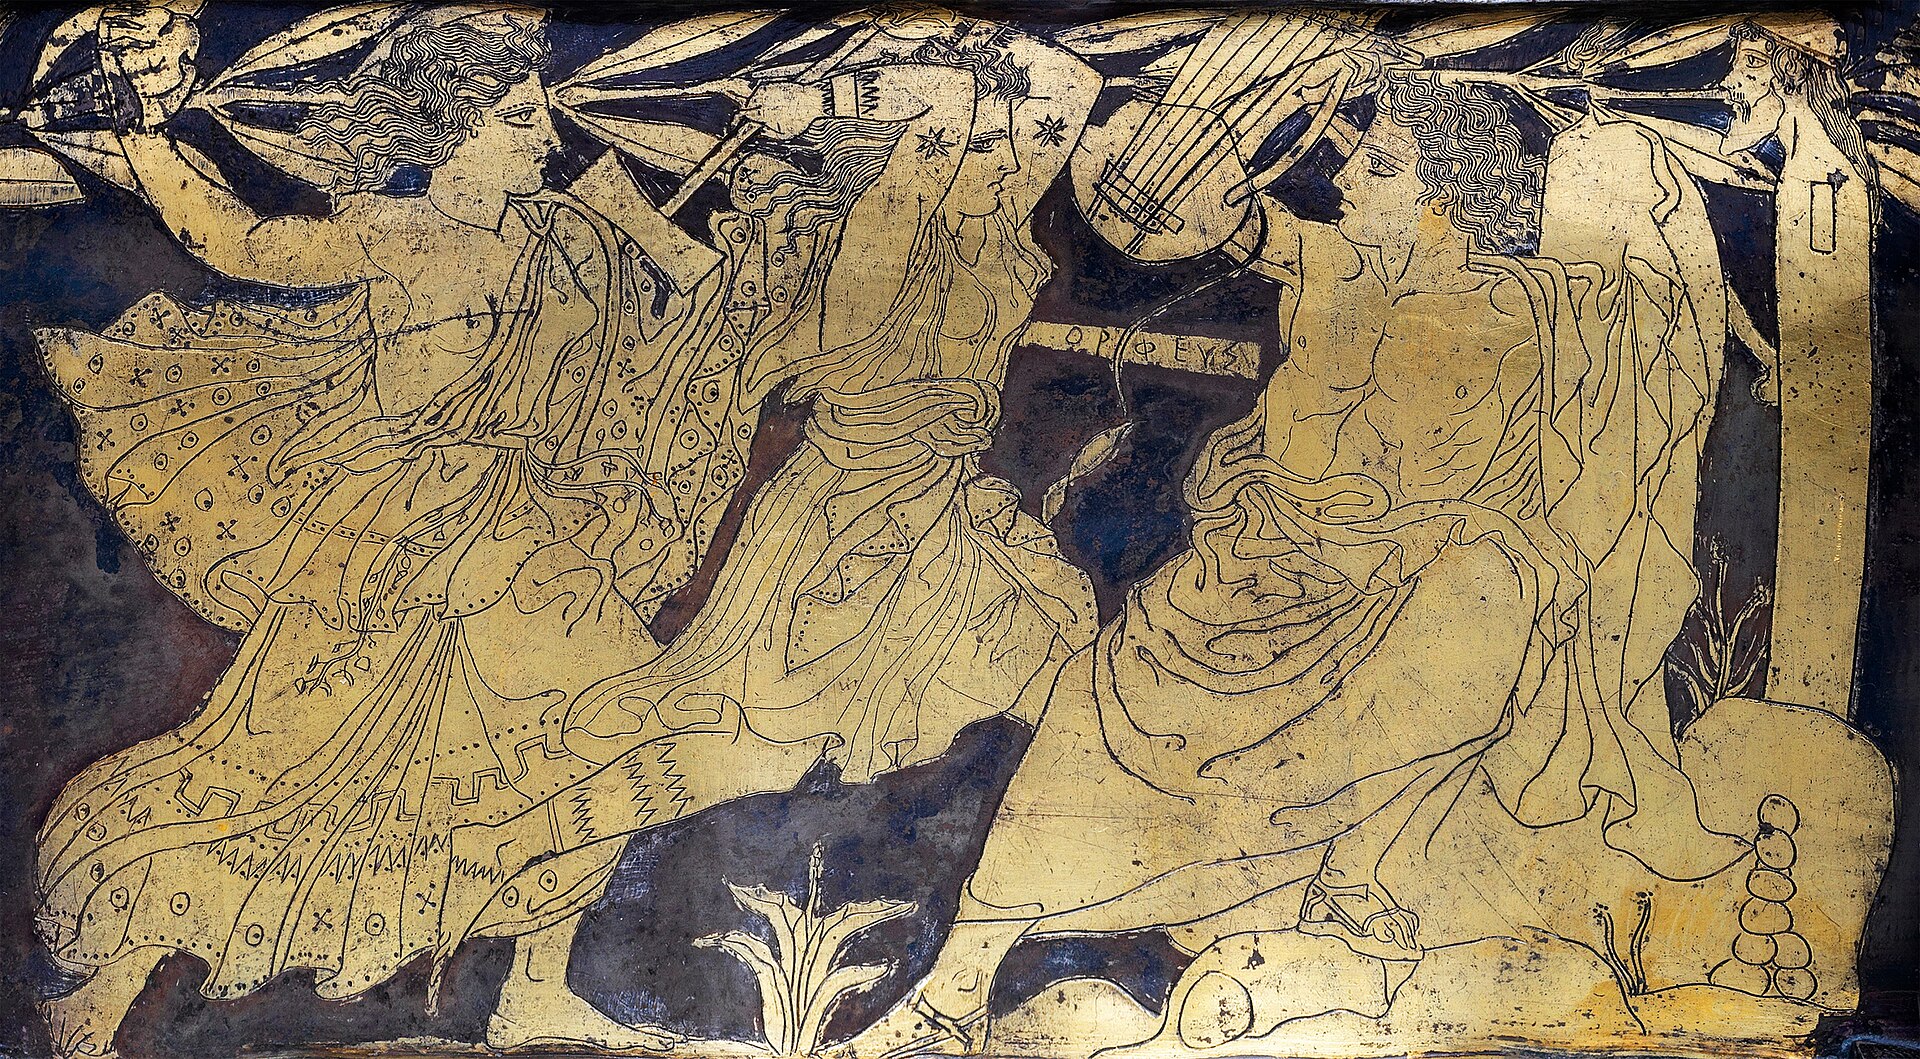 ΟΡΦΕΥΣ